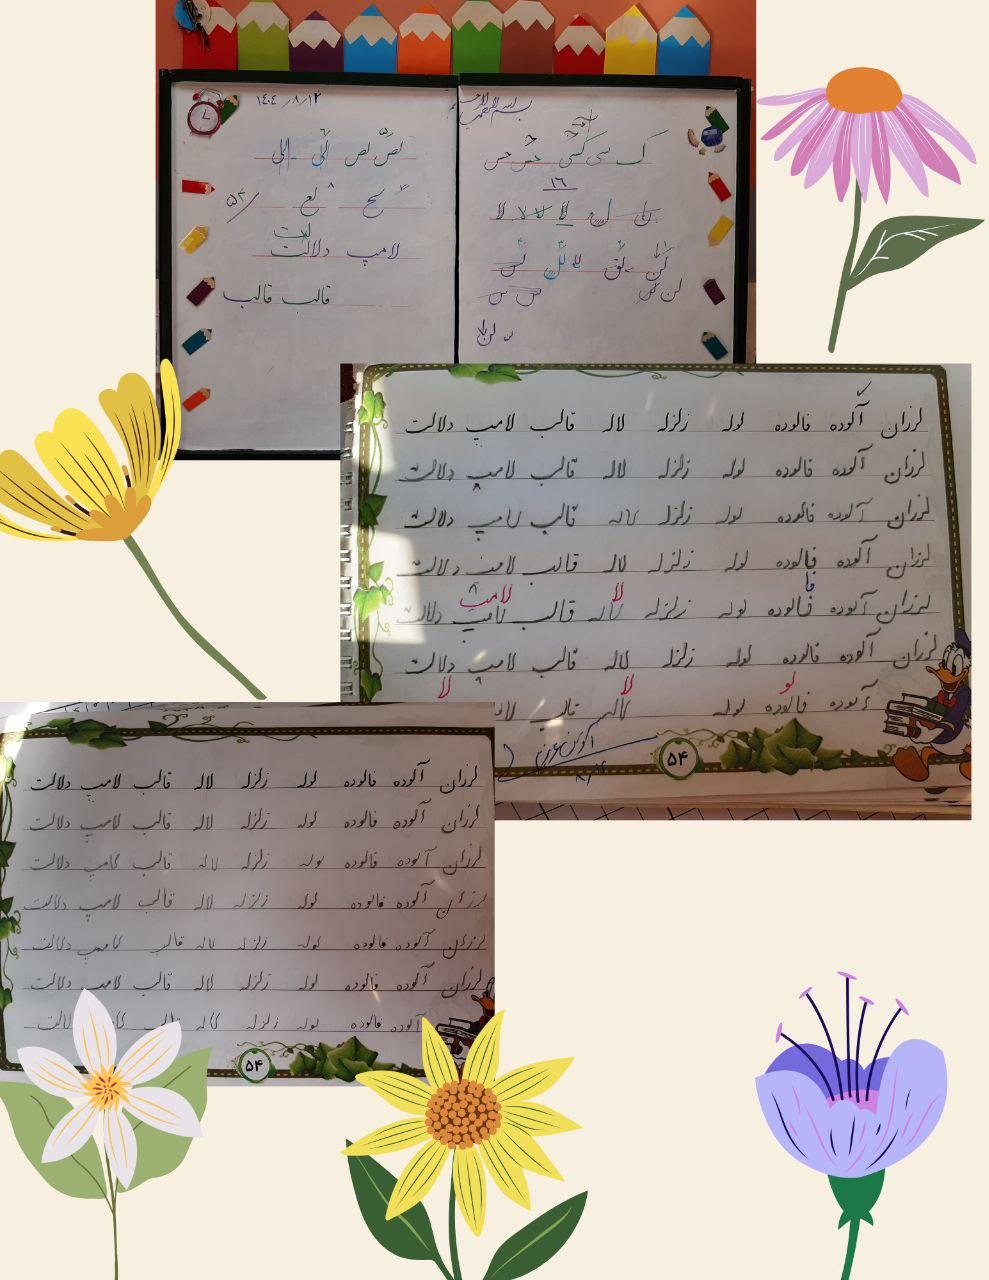 بسم الله الرحمن الرحیم
ک سی کسی خس خس
۱۶
لا لا لا
لق لا لل لس
لن
۱۴۰۴/۸/۱۲
لص لص
سح لع ۵۴/
لت
لامپ دلالت
قالب قالب
لرزان آلوده فالوده لوله زلزله لاله قالب لامپ دلالت
لرزان آلوده فالوده لوله زلزله لاله قالب لامپ دلالت
لرزان آلوده فالوده لوله زلزله لاله قالب لامپ دلالت
لرزان آلوده فالوده لوله زلزله لاله قالب لامپ دلالت
فا
لا لامپ
لرزان آلوده فالوده لوله زلزله لاله قالب لامپ دلالت
لرزان آلوده فالوده لوله زلزله لاله قالب لامپ دلالت
لو لا لا
آلوده فالوده لوله لاله قالب
۵۴
لرزان آلوده فالوده لوله زلزله لاله قالب لامپ دلالت
لرزان آلوده فالوده لوله زلزله لاله قالب لامپ دلالت
لرزان آلوده فالوده لوله زلزله لاله قالب لامپ دلالت
لرزان آلوده فالوده لوله زلزله لاله قالب لامپ دلالت
لرزان آلوده فالوده لوله زلزله لاله قالب لامپ دلالت
لرزان آلوده فالوده لوله زلزله لاله قالب لامپ دلالت
آلوده فالوده لوله زلزله لاله قالب دلالت
۵۴